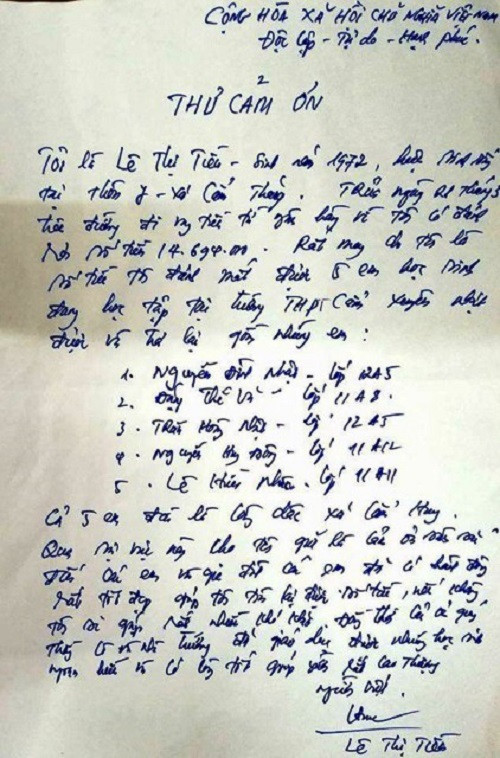 CỘNG HÒA XÃ HỘI CHỦ NGHĨA VIỆT NAM
Độc lập - Tự do - Hạnh phúc.
THƯ CẢM ƠN
Tôi là Lê Thị Tiến - Sinh năm 1972, hiện sinh sống
tại thôn 7 - xã Cẩm Thăng. Trưa ngày 21 tháng 3
trên đường đi tiền từ ngân hàng về Tôi có đánh
rơi số tiền 14.694.000. Rất may cho tôi là
số tiền tôi đánh mất được 5 em học sinh
đang học tập tại trường THPT Cẩm Xuyên nhặt
được và trả lại gồm những em:
1. Nguyễn Đình Nhật - lớp 12A5
2. Đặng Thế Vĩ - lớp 11A8.
3. Trần Hoàng Nhật - lớp 12A5
4. Nguyễn Huy - lớp 11A12
5. Lê Nhân - lớp 11A11
Cả 5 em đều là xã Cẩm Hưng.
Qua sự việc này cho tôi gửi lời cảm ơn
đến các em và gia đình các em đã có hành động
rất tốt đẹp giúp tôi tìm lại được số tiền, nếu không
tôi sẽ gặp rất nhiều khó khăn. Đồng thời cảm ơn quý
thầy cô và nhà trường đã giáo dục được những học sinh
ngoan hiền và có lòng tốt giúp cao thượng
người viết.
Lê Thị Tiến